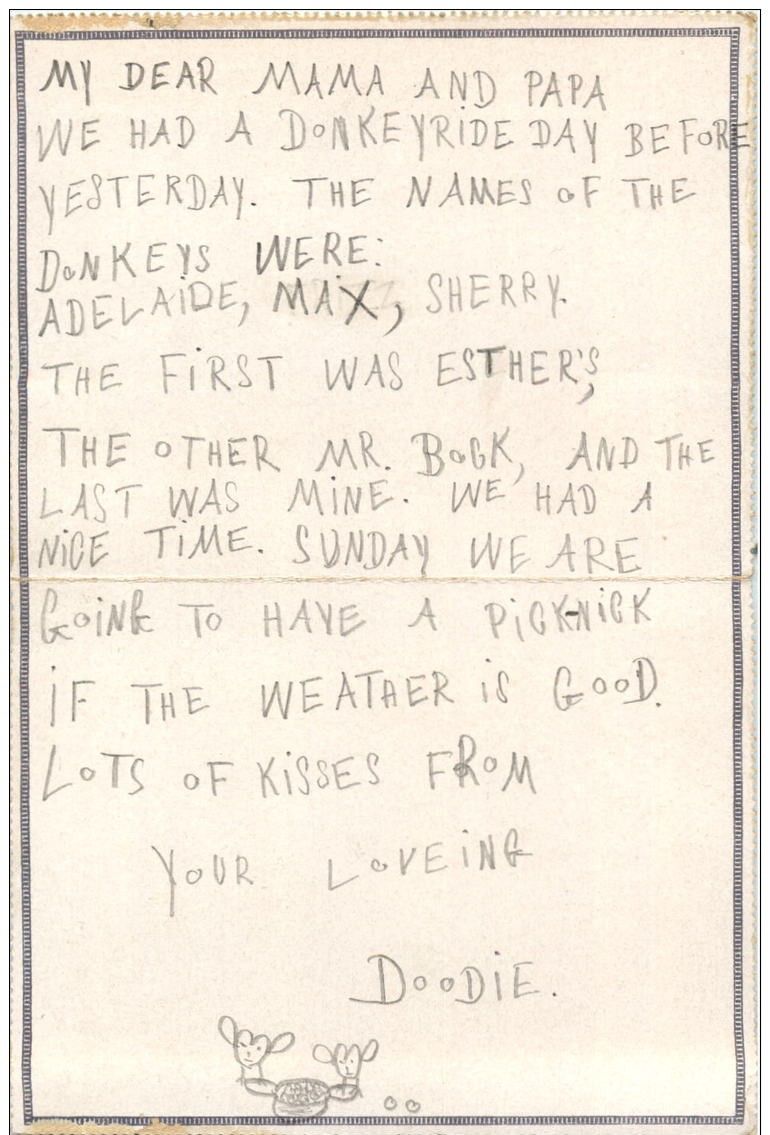 MY DEAR MAMA AND PAPA
WE HAD A DONKEYRIDE DAY BEFORE
YESTERDAY. THE NAMES OF THE
DONKEYS WERE:
ADELAIDE, MAX, SHERRY.
THE FIRST WAS ESTHER'S,
THE OTHER MR. BOCK, AND THE
LAST WAS MINE. WE HAD A
NICE TIME. SUNDAY WE ARE
GOING TO HAVE A PICK-NICK
IF THE WEATHER IS GOOD.
LOTS OF KISSES FROM
YOUR LOVEING
DOODIE.